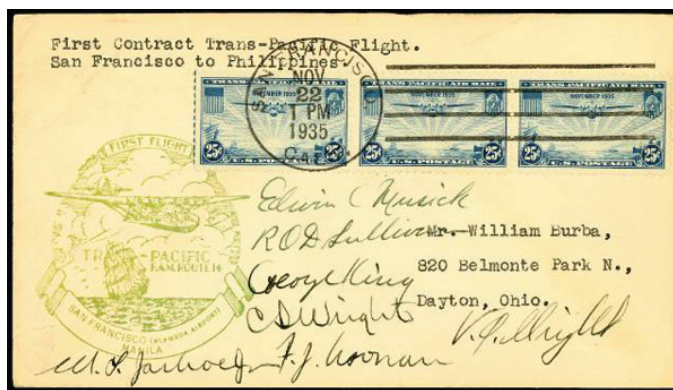 First Contract Trans-Pacific Flight.
San Francisco to Philippines.
SAN FRANCISCO
NOV
22
1 PM
1935
CALIF.
TRANS-PACIFIC AIR MAIL
NOVEMBER 1935
25¢ U.S. POSTAGE 25¢
TRANS-PACIFIC AIR MAIL
NOVEMBER 1935
25¢ U.S. POSTAGE 25¢
TRANS-PACIFIC AIR MAIL
NOVEMBER 1935
25¢ U.S. POSTAGE 25¢
FIRST FLIGHT
PACIFIC
F.A.M. ROUTE 14
SAN FRANCISCO (ALAMEDA AIRPORT)
MANILA
Edwin C Musick
R O D Sullivan
George King
C D Wright
F. J. Noonan
V. A. Wright
Mr. William Burba,
820 Belmonte Park N.,
Dayton, Ohio.